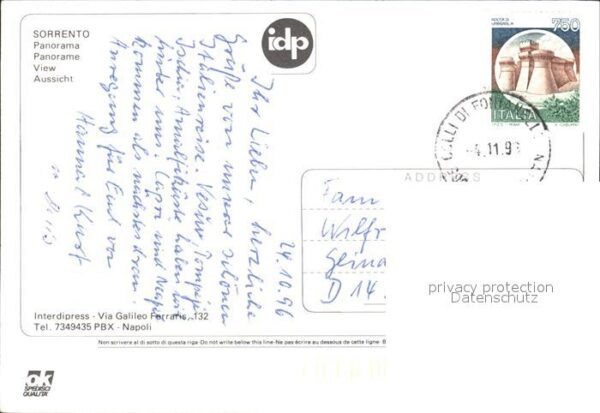 SORRENTO
Panorama
Panorame
View
Aussicht
idp
ROCCA DI
URBISAGLIA
750
ITALIA
COLLI DI FONTANELLE
-4.11.9
NA
24.10.96
Ihr Lieben, herzliche
Grüße von unserer schönen
Italienreise. Vesuv, Pompeji
Ischia, Amalfiküste haben wir
hinter uns. Capri und Neapel
kommen als nächstes dran.
Anregung für Euch von
Hanna + Kurt
ADDRESS
Fam
Wilfr
D 14
privacy protection
Datenschutz
Interdipress - Via Galileo Ferraris, 132
Tel. 7349435 PBX - Napoli
Non scrivere al di sotto di questa riga-Do not write below this line-Ne pas écrire au dessous de cette ligne
ok
SPEDISCI
QUALITÀ